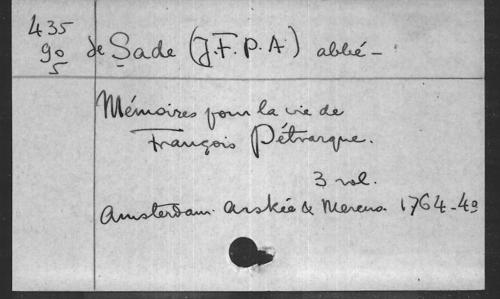 435
90
5
de Sade (J.F.P.A) abbé —
Mémoires pour la vie de
François Pétrarque.
3 vol.
Amsterdam. Arskée & Mercus. 1764-4º